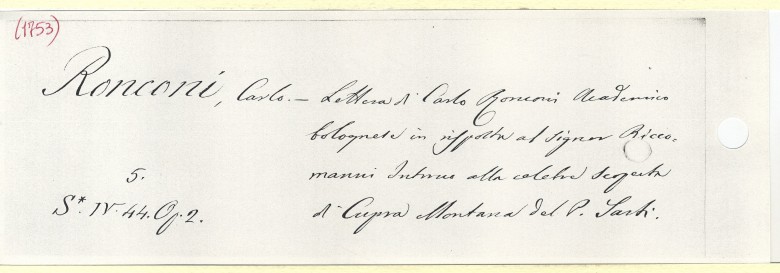 (1753)
Ronconi, Carlo. — Lettera di Carlo Ronconi Academico
bolognese in risposta al Signor Ricco-
manni Intorno alla celebre scoperta
di Cupra Montana del P. Sarti.
5.
S*. IV. 44. Op. 2.